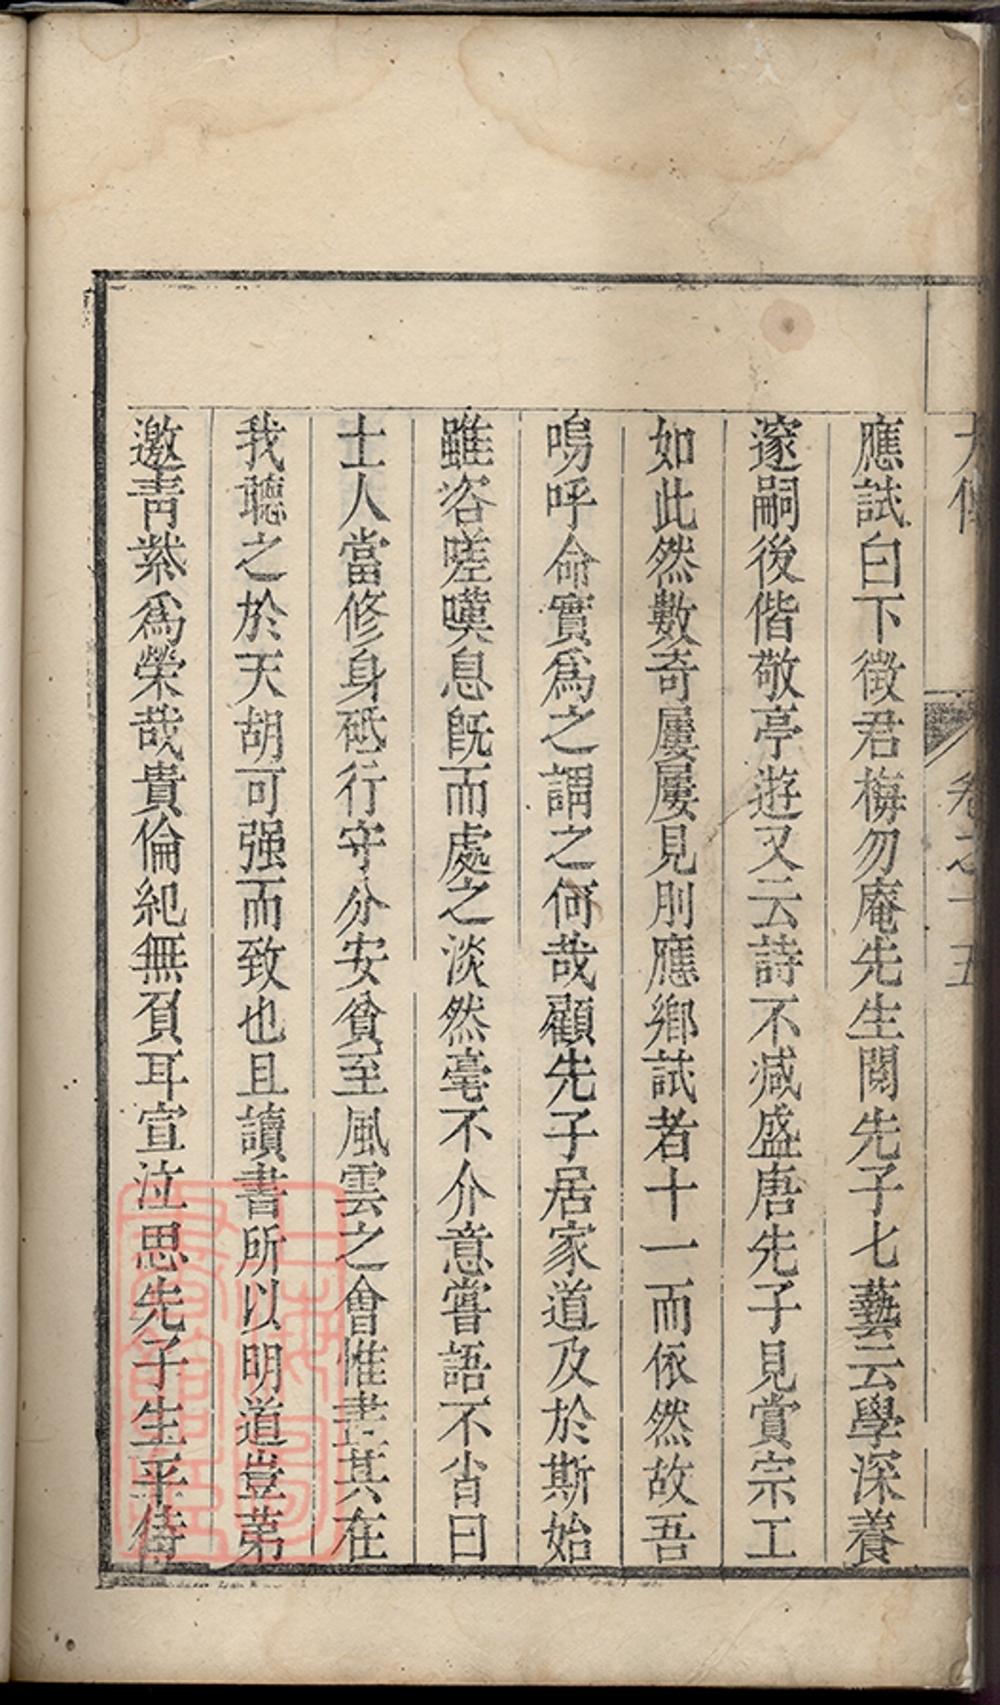 應試白下徵君梅勿庵先生閱先子七藝云學深養
邃嗣後偕敬亭遊又云詩不減盛唐先子見賞宗工
如此然數奇屢屢見刖應鄉試者十一而依然故吾
嗚呼命實爲之謂之何哉顧先子居家道及於斯始
雖咨嗟嘆息旣而處之淡然毫不介意嘗語不肖曰
士人當修身砥行守分安貧至風雲之會惟盡其在
我聽之於天胡可强而致也且讀書所以明道豈第
邀靑紫爲榮哉貴倫紀無負耳宣泣思先子生平侍